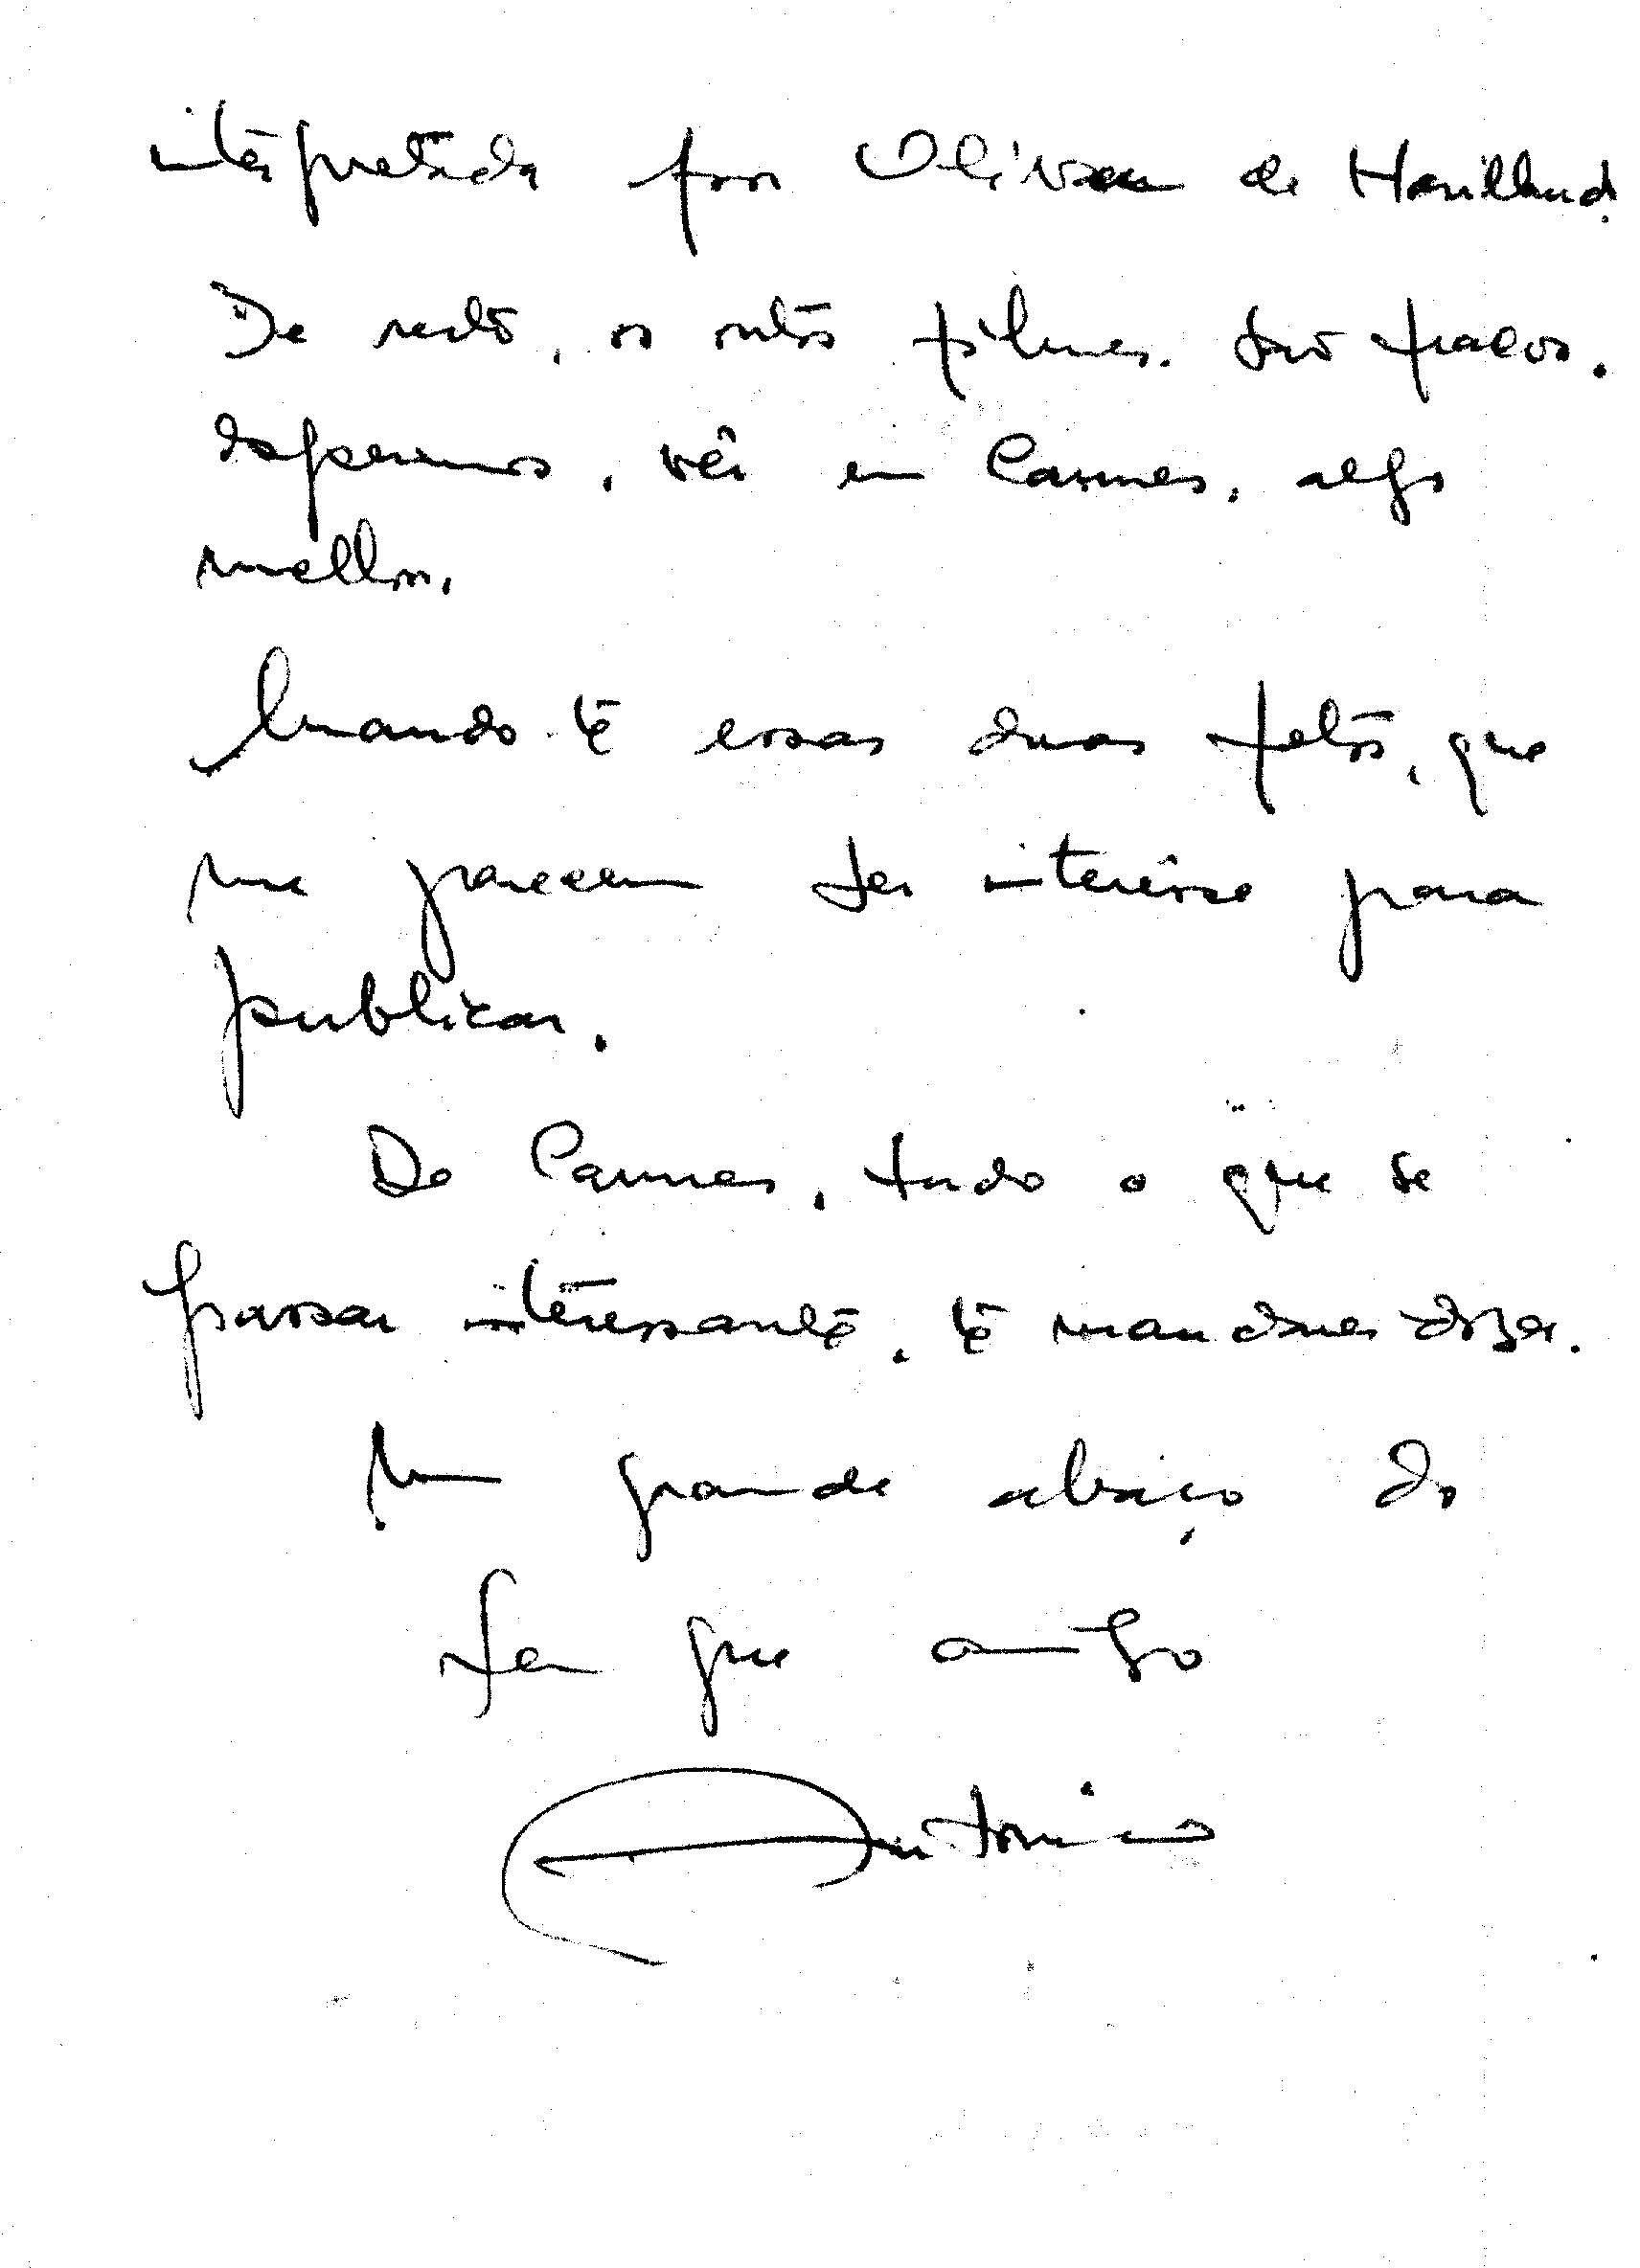 interpretada por Olivia de Havilland.
De resto, os outros filmes. São fracos.
Esperamos, ver em Cannes, algo
melhor.
Mando-te essas duas fotos, que
me parecem ter interêsse para
publicar.
De Cannes, tudo o que se
passar interessante, te mandarei dizer.
Um grande abraço do
sempre amigo
Antonio